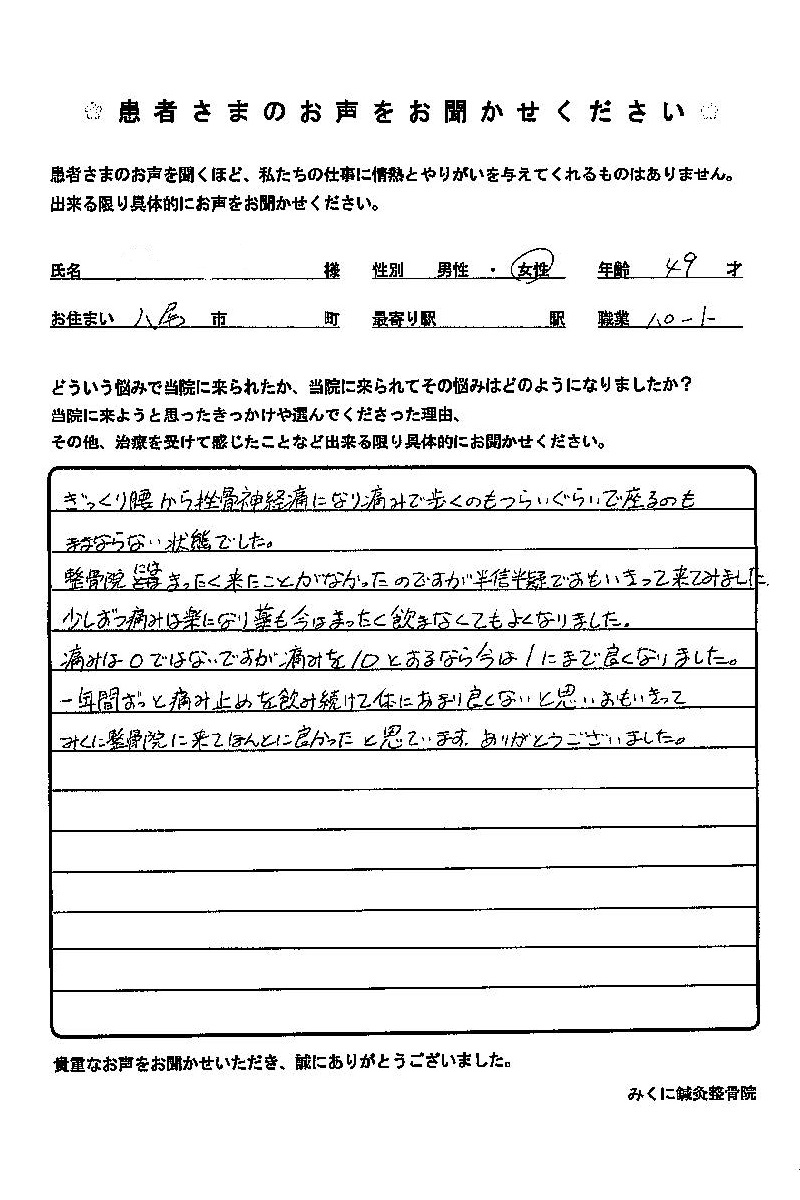 患者さまのお声をお聞かせください
患者さまのお声を聞くほど、私たちの仕事に情熱とやりがいを与えてくれるものはありません。
出来る限り具体的にお声をお聞かせください。
氏名 様 性別 男性・女性 年齢 49 才
お住まい 八尾 市 町 最寄り駅 駅 職業 パート
どういう悩みで当院に来られたか、当院に来られてその悩みはどのようになりましたか？
当院に来ようと思ったきっかけや選んでくださった理由、
その他、治療を受けて感じたことなど出来る限り具体的にお聞かせください。
ぎっくり腰から挫骨神経痛になり痛みで歩くのもつらいぐらいで座るのも
ままならない状態でした。
整骨院には まったく来たことがなかったのですが半信半疑でおもいきって来てみました
少しずつ痛みは楽になり薬も今はまったく飲まなくてもよくなりました。
痛みは0ではないですが痛みを10とするなら今は1にまで良くなりました。
一年間ずっと痛み止めを飲み続けて体にあまり良くないと思いおもいきって
みくに整骨院に来てほんとに良かったと思ています。ありがとうございました。
貴重なお声をお聞かせいただき、誠にありがとうございました。
みくに鍼灸整骨院